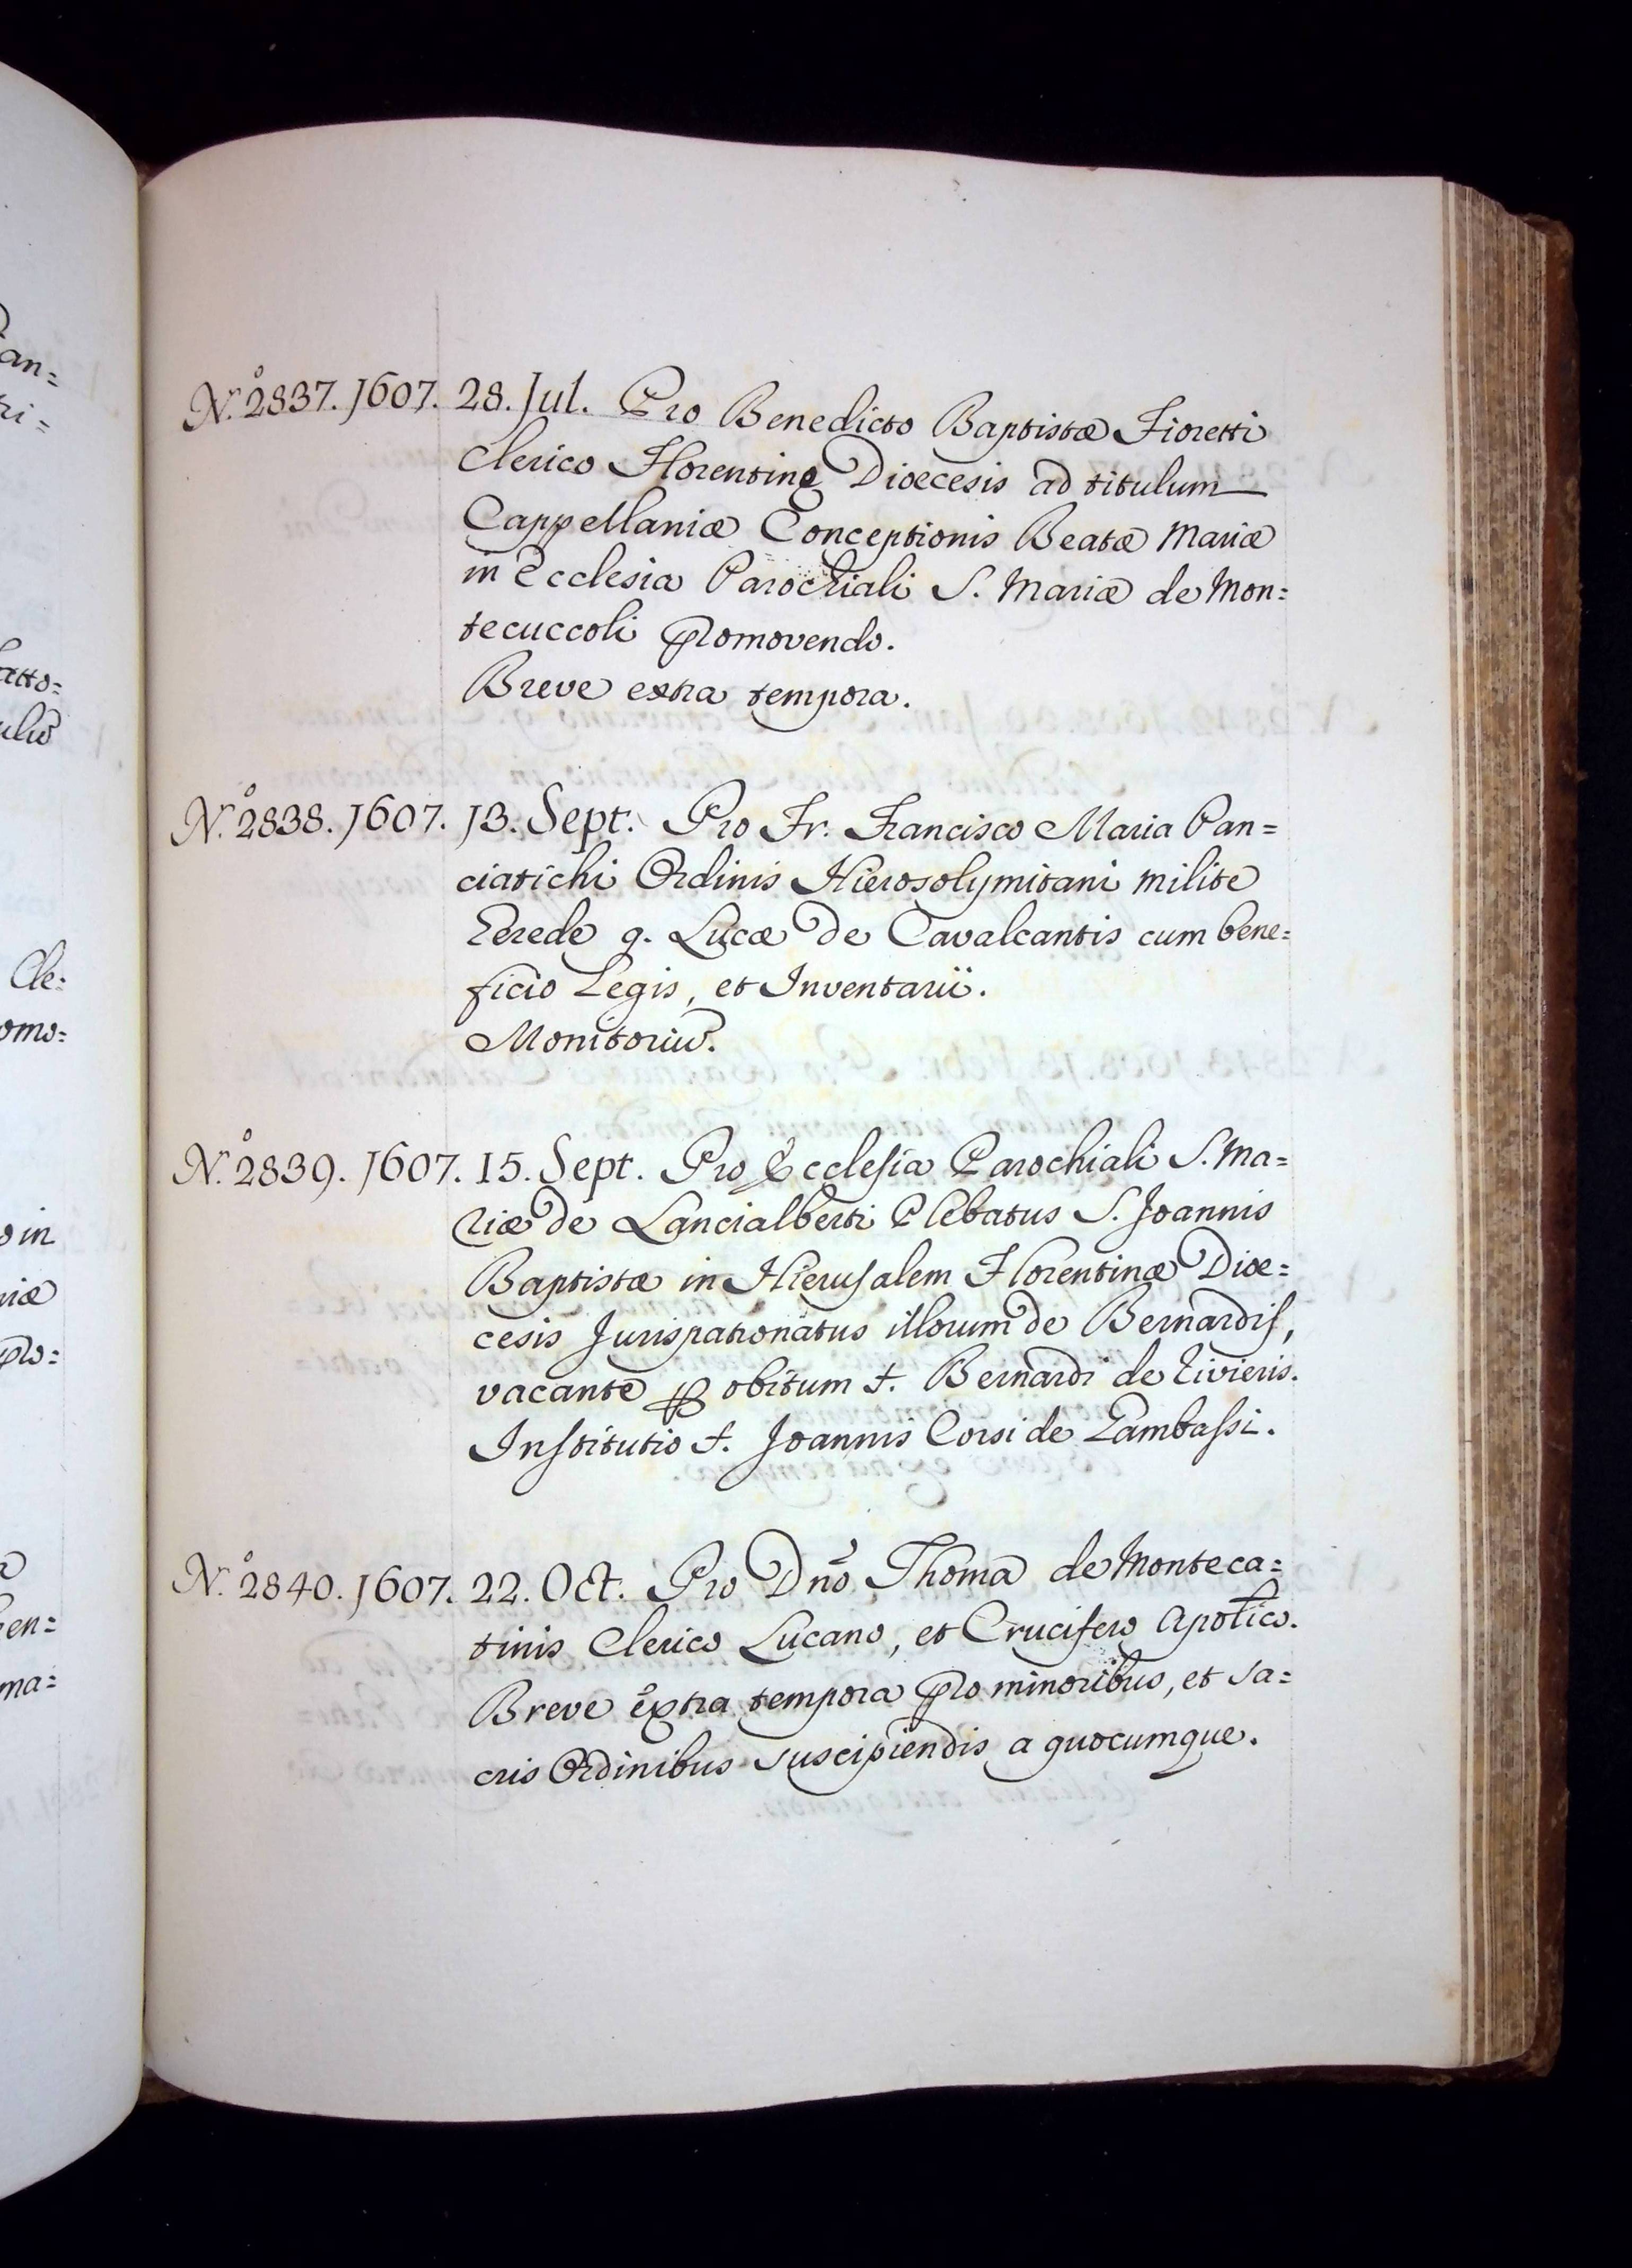 an=
ri=
atto=
ulũ
Cle:
omo:
o in
niæ
pro:
en=
ma=
N.º 2837. 1607. 28. Jul. Pro Benedicto Baptistæ Fioretti
Clerico Florentinę Dioecesis ad titulum
Cappellaniæ Conceptionis Beatæ Mariæ
in Ecclesia Parochiali S. Mariæ de Mon=
tecuccoli promovendo.
Breve extra tempora.
N.º 2838. 1607. 13. Sept. Pro Fr. Francisco Maria Pan=
ciatichi Ordinis Hierosolymitani milite
herede q. Lucæ de Cavalcantis cum bene=
ficio Legis, et Inventarii.
Monitoriũ.
N.º 2839. 1607. 15. Sept. Pro Ecclesia Parochiali S. Ma=
riæ de Lancialberti Plebatus S. Joannis
Baptistæ in Hierusalem Florentinæ Dioe=
cesis Jurispatronatus illorum de Bernardis,
vacante ꝑ obitum f. Bernardi de Rivieris.
Institutio f. Joannis Corsi de Gambassi.
N.º 2840. 1607. 22. Oct. Pro Dño Thoma de Monteca=
tinis Clerico Lucano, et Crucifero Apotico.
Breve extra tempora pro minoribus, et sa=
cris Ordinibus suscipiendis a quocumque.